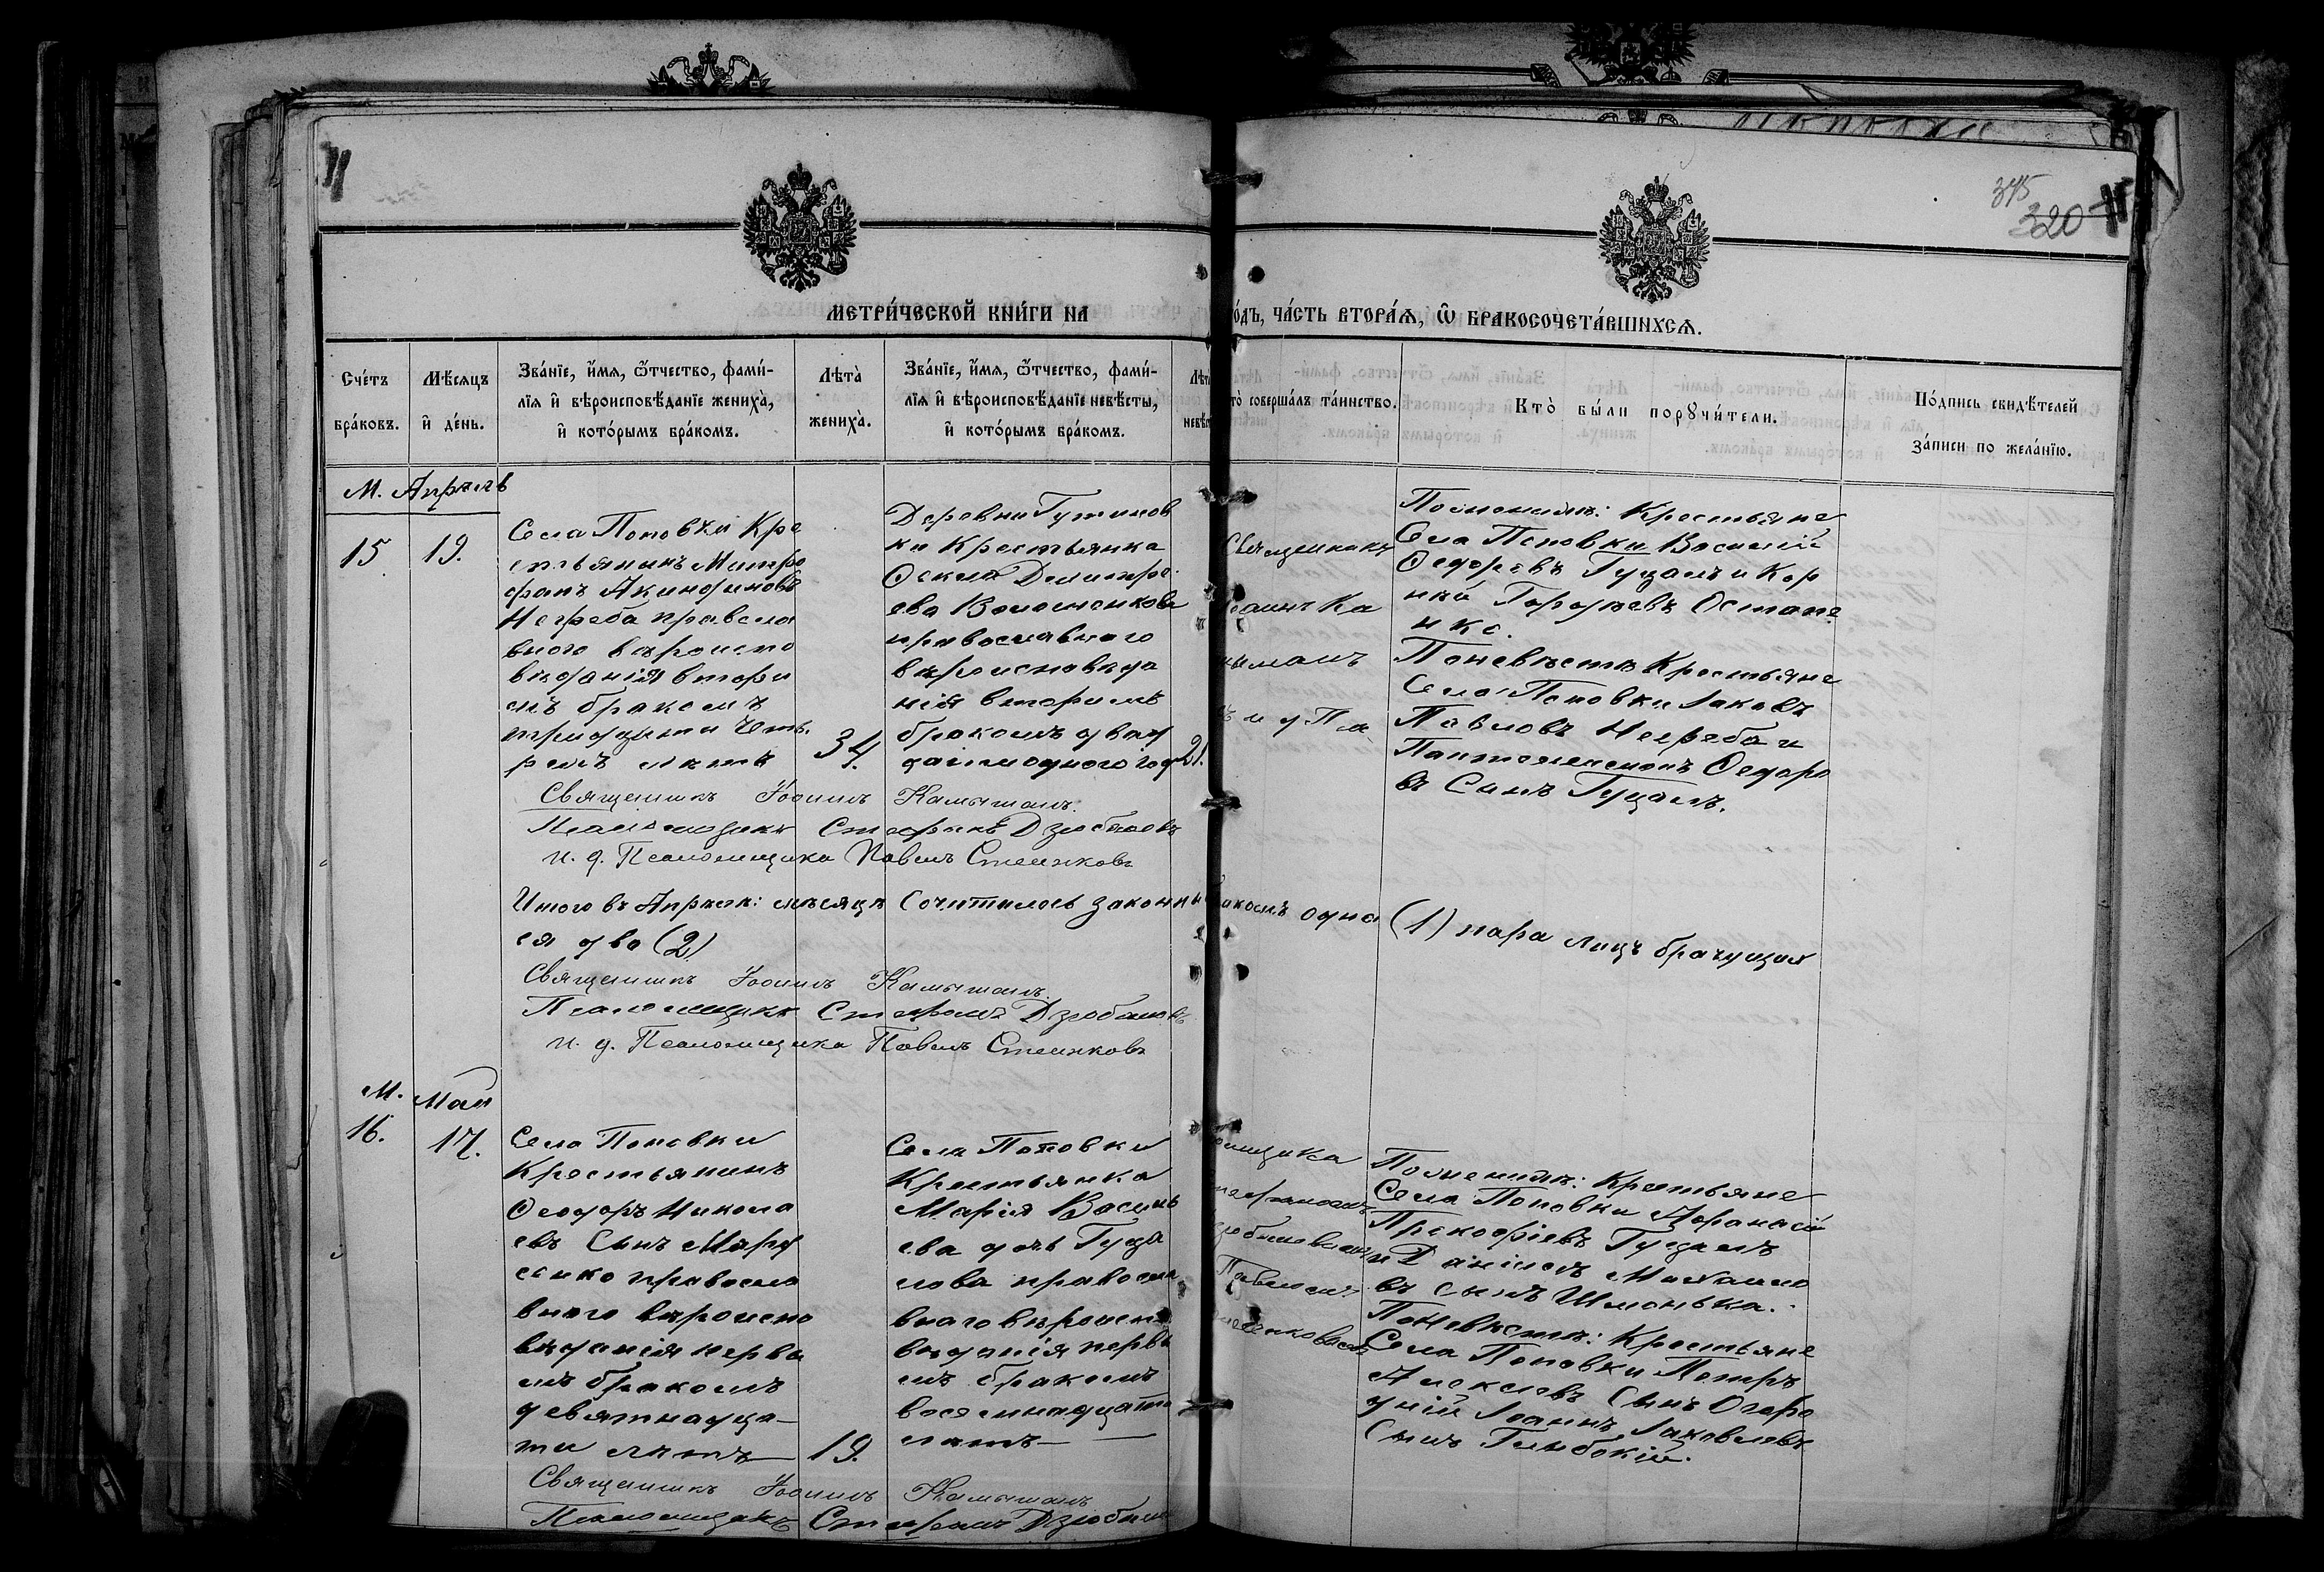 375
320
МЕТРИ́ЧЕСКОЙ КНИ́ГИ НА
О́ДЪ, ЧА́СТЬ ВТОРА́Ѧ, Ѿ БРАКОСОЧЕТА́ВШИХСѦ.
Сче́тъ
бра́ковъ.
Мѣ́сяцъ
и̂ де́нь.
Зва́нїе, и́мѧ, ѻ҆́тчество, фами́-
лїѧ и҆ вѣроисповѣ́данїе жениха̀,
и҆ кото́рымъ бра́комъ.
Лѣта̀
жениха̀.
Зва́нїе, и́мѧ, ѻ҆́тчество, фами́-
лїѧ и҆ вѣроисповѣ́данїе невѣ́сты,
и҆ кото́рымъ бра́комъ.
то̀ соверша́лъ та́инство.
Кто̀ бы́ли порꙋчи́тели.
По́дпись свидѣ́телей
за́писи по жела́нїю.
М. Апрѣль
15
19.
Села Поповки Кре
стьянинъ Митро
фанъ Акиндиновъ
Негреба правосла
внаго вѣроиспо
вѣданія вторы
мъ бракомъ
тридцати четы
рехъ лѣтъ
34.
Деревни Гутиров
ки Крестьянка
Димитрі
ева Волошенкова
православнаго
вѣроисповѣда
нія вторымъ
бракомъ двад
цати одного год
21.
Священникъ
Іоаннъ Ка
мышанъ
Поженихѣ: Крестьяне
Села Поповки Василій
Ѳедоровъ Гуцалъ и Кор
нѣй Остапе
нко.
Поневѣстѣ Крестьяне
Села Поповки Іаковъ
Павловъ Негреба и
Пантелеимонъ Ѳедоро
въ Сынъ Гуцалъ.
Священникъ Іоаннъ Камышанъ.
Псаломщикъ Стефанъ Дзюбановъ
и. д. Псаломщика Павелъ
Итого въ Апрѣлѣ: мѣсяцѣ Сочиталось законны
акомъ одна (1) пара лицъ брачущих
ся два (2)
Священникъ Іоаннъ Камышанъ.
Псаломщикъ Стефанъ Дзюбановъ
и. д. Псаломщика Павелъ
М. Май
16.
17.
Села Поповки
Крестьянинъ
Ѳеодоръ Никола
евъ Сынъ
православ
внаго вѣроиспо
вѣданія первы
мъ бракомъ
девятнадца-
ти лѣтъ
19.
Села Поповки
Крестьянка
Марія Василь
ева дочь Гуца
лова правосла
внаго вѣроиспо
вѣданія первы
мъ бракомъ
восемнадцати
лѣтъ
Поженихѣ: Крестьяне
Села Поповки Афанасій
Прокофіевъ Гуцалъ
и Даніилъ Михаило
въ сынъ Шмонька.
Поневѣстѣ: Крестьяне
Села Поповки Петръ
Алексѣевъ Сынъ
Іоаннъ Іаковлевъ
Сынъ Глыбокій.
Священникъ Іоаннъ Камышанъ
Псаломщикъ Стефанъ Дзюбан